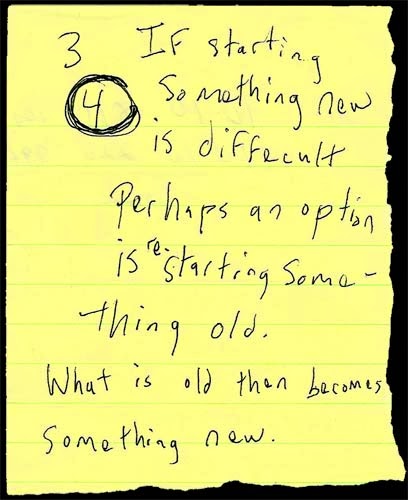 3 IF starting
4 Something new
is diffecult
Perhaps an option
is re-starting Some-
thing old.
What is old then becomes
Something new.